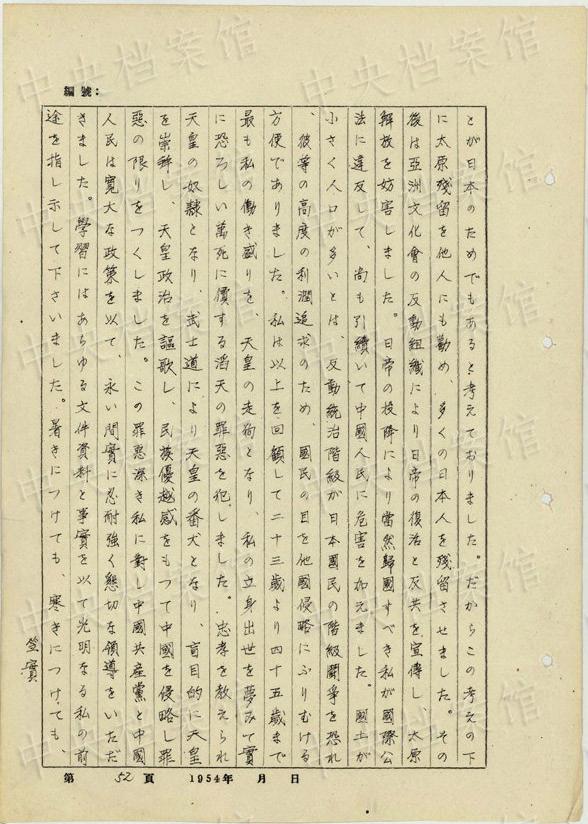 編號：
とが日本のためでもあると考えておりました。だからこの考えの下
に太原殘留を他人にも勸め、多くの日本人を殘留させました。その
後は亞洲文化會の反動組織により日帝の復活と反共を宣傳し、太原
解放を妨害しました。日帝の投降により當然歸國すべき私が國際公
法に違反して、尚も引續いて中國人民に危害を加えました。國土が
小さく人口が多いとは、反動統治階級が日本國民の階級鬪爭を恐れ
、彼等の高度の利潤追求のため、國民の目を他國侵略にふりむける
方便でありました。私は以上を回顧して二十三歳より四十五歳まで
最も私の働き盛りを、天皇の走狗となり、私の立身出世を夢みて實
に恐ろしい萬死に價する滔天の罪惡を犯しました。忠孝を教えられ
天皇の奴隸となり、武士道により天皇の番犬となり、盲目的に天皇
を崇拜し、天皇政治を謳歌し、民族優越感をもつて中國を侵略し罪
惡の限りをつくしました。この罪惡深き私に對し中國共産黨と中國
人民は寬大な政策を以て、永い間實に忍耐強く懇切な領導をいただ
きました。學習にはあらゆる文件資料と事實を以て光明なる私の前
途を指し示して下さいました。暑きにつけても、寒きにつけても、
笠實
第 52 頁 1954年 月 日
中央档案馆